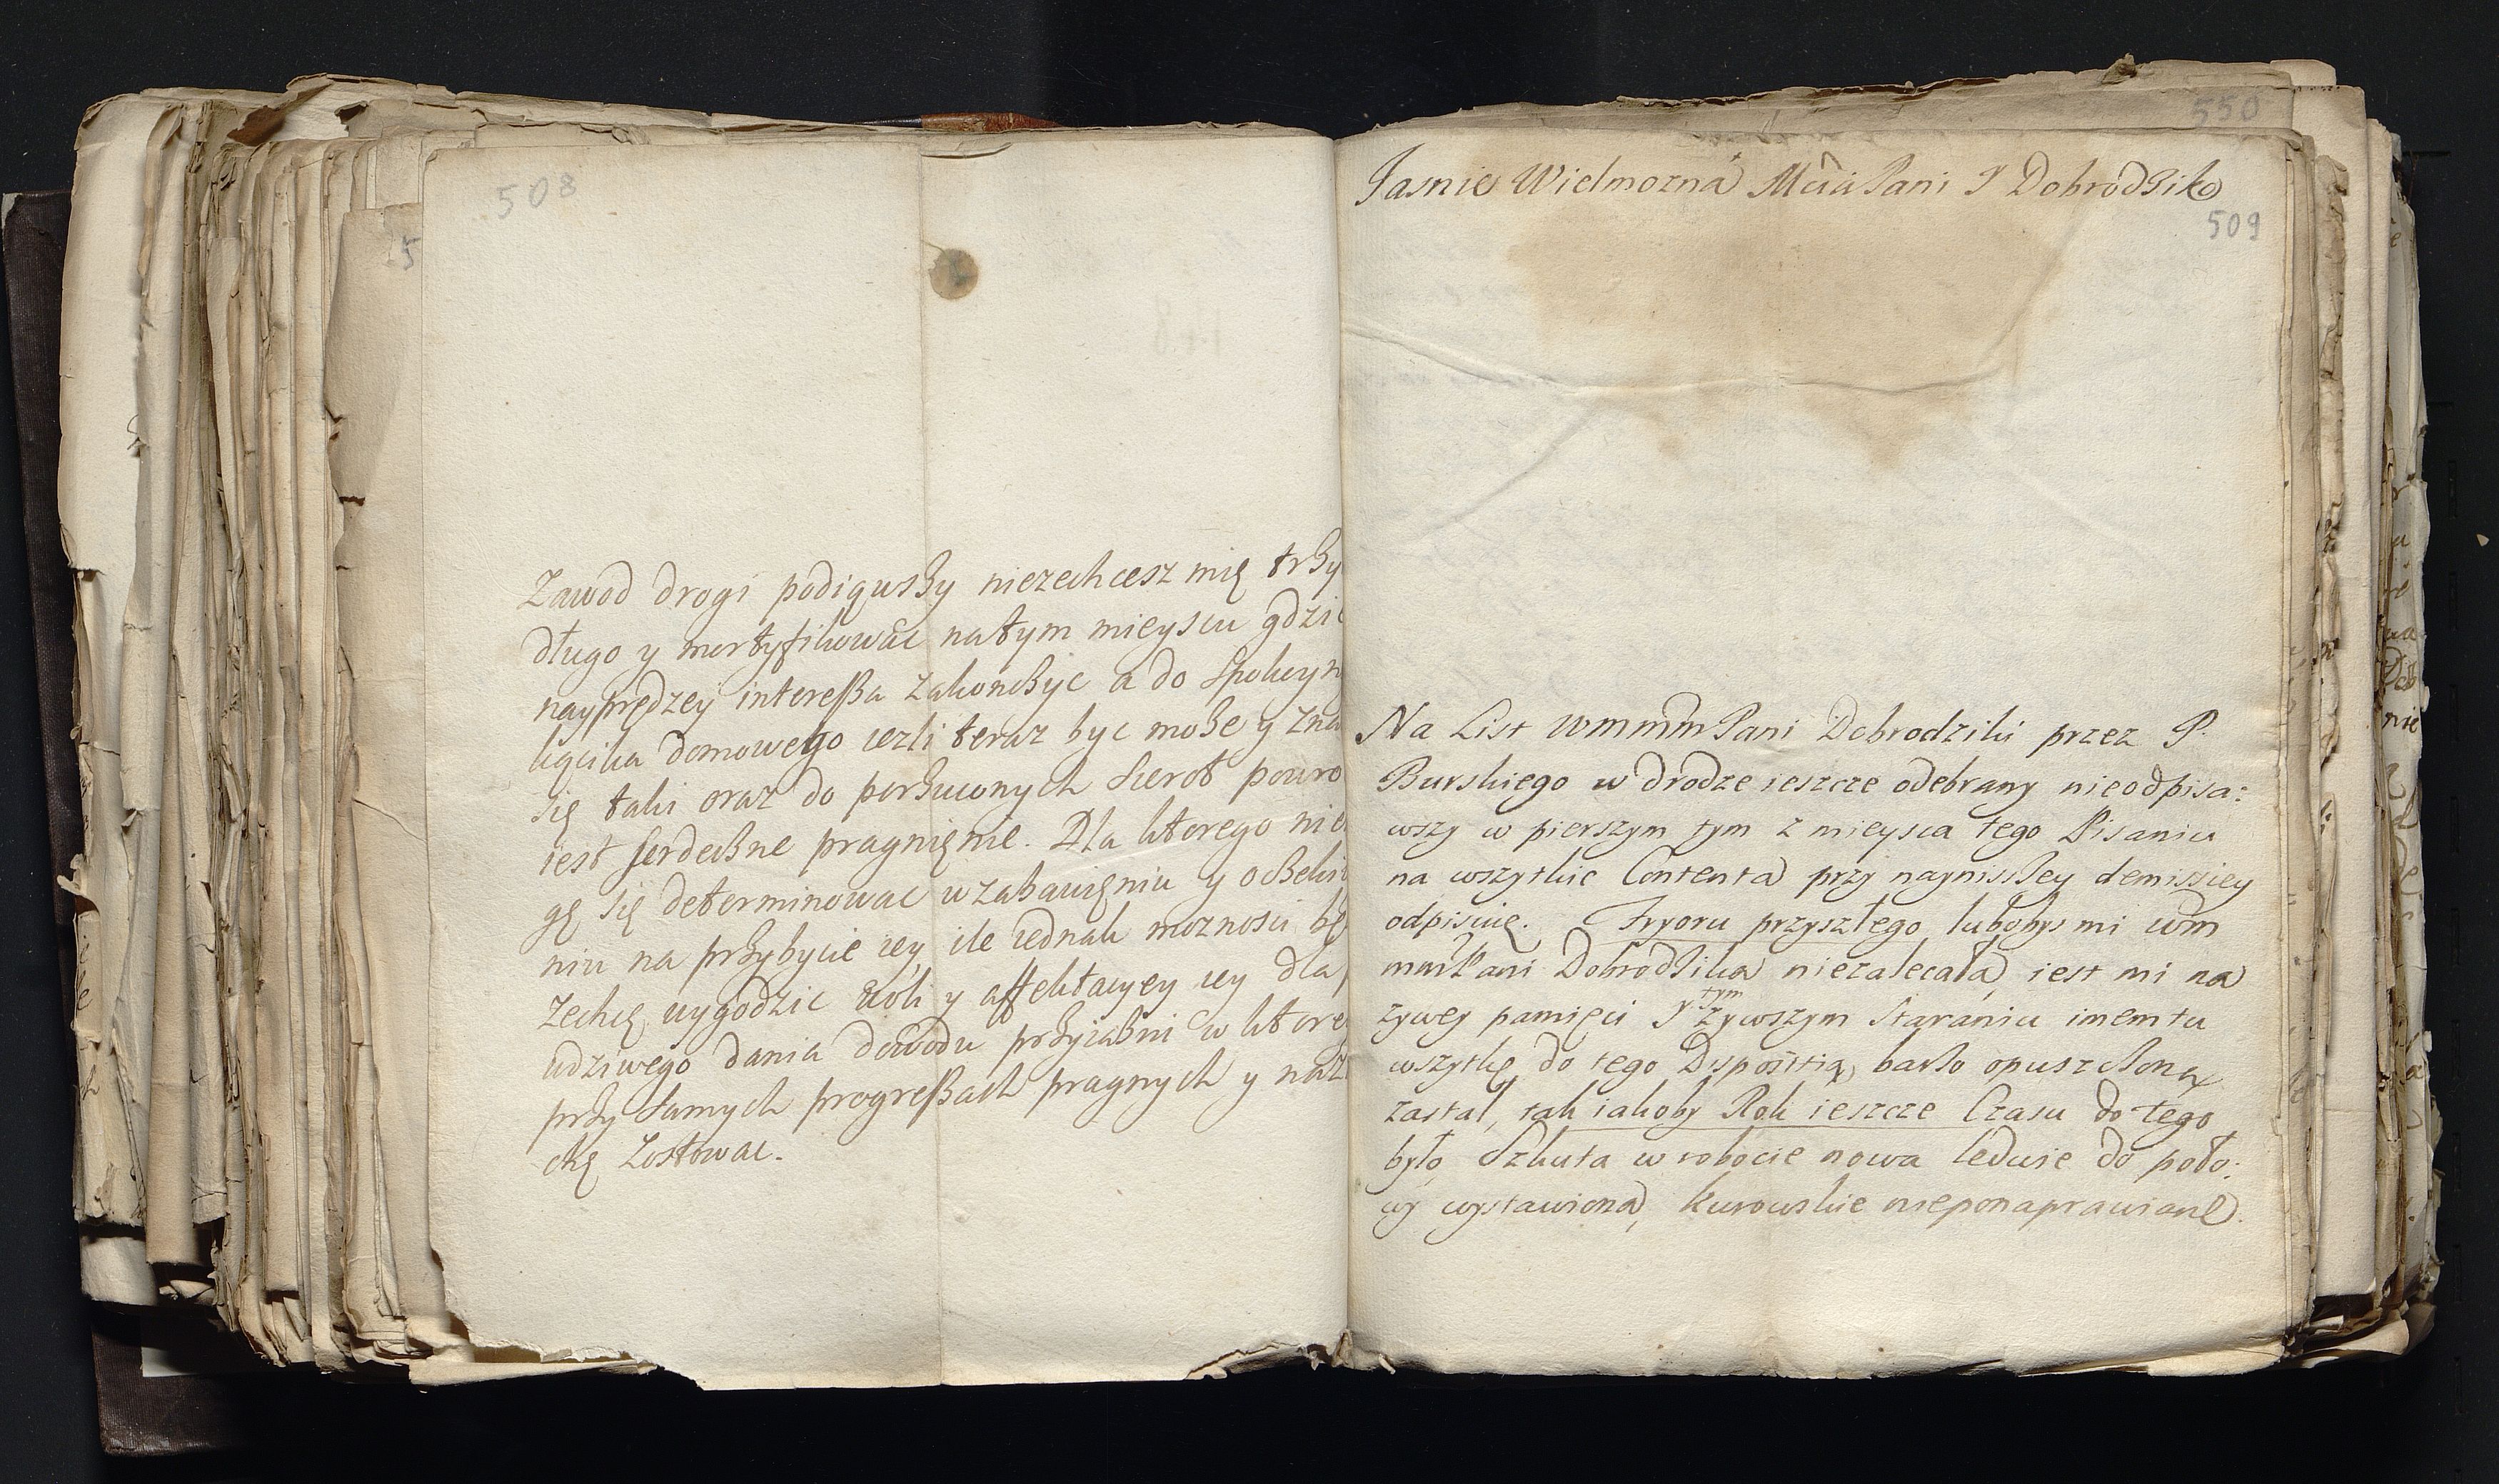 508
Zawod drogi podiąwszy niezechcesz mię trzy
długo y mortyfikowac natym mieyscu gdzie
nayprędzey interessa zakonczyc a do spokoyn
kącika domowego iezli teraz byc moze y zna
się taki oraz do porzuconych sierot powro
iest serdeczne pragnięnie. Dla ktorego nie
gę się determinowac w zabawięniu y oczeki
niu na przybycie iey ile iednak moznosci bę
zechcę wygodzic woli y affektacyey iey dla
udziwego dania dowodu przyiazni w ktore
przy samych progressach pragnych y naz
chę zostawac.
550
Jasnie Wielmozna Mcia Pani y Dobrodziko
509
Na List Wmmm Pani Dobrodziki przez P.
Burskiego w drodze ieszcze odebrany nieodpisa:
wszy w pierszym tym z mieysca tego Pisaniu
na wszytkie Contenta przy naynisszey demissiey
odpisuię. Fryoru przyszłego lubobys mi Wm
mm Pani Dobrodzika niezalecała, iest mi na
zywey pamięci y tym zywszym Staraniu imemtu
wszytkę do tego Dyspositią, barzo opuszczoną
zastał, tak iakoby Rok ieszcze Czasu do tego
było, Szkuta w robocie nowa ledwie do poło:
wy wystawiona, kurowskie nieponaprawiane.